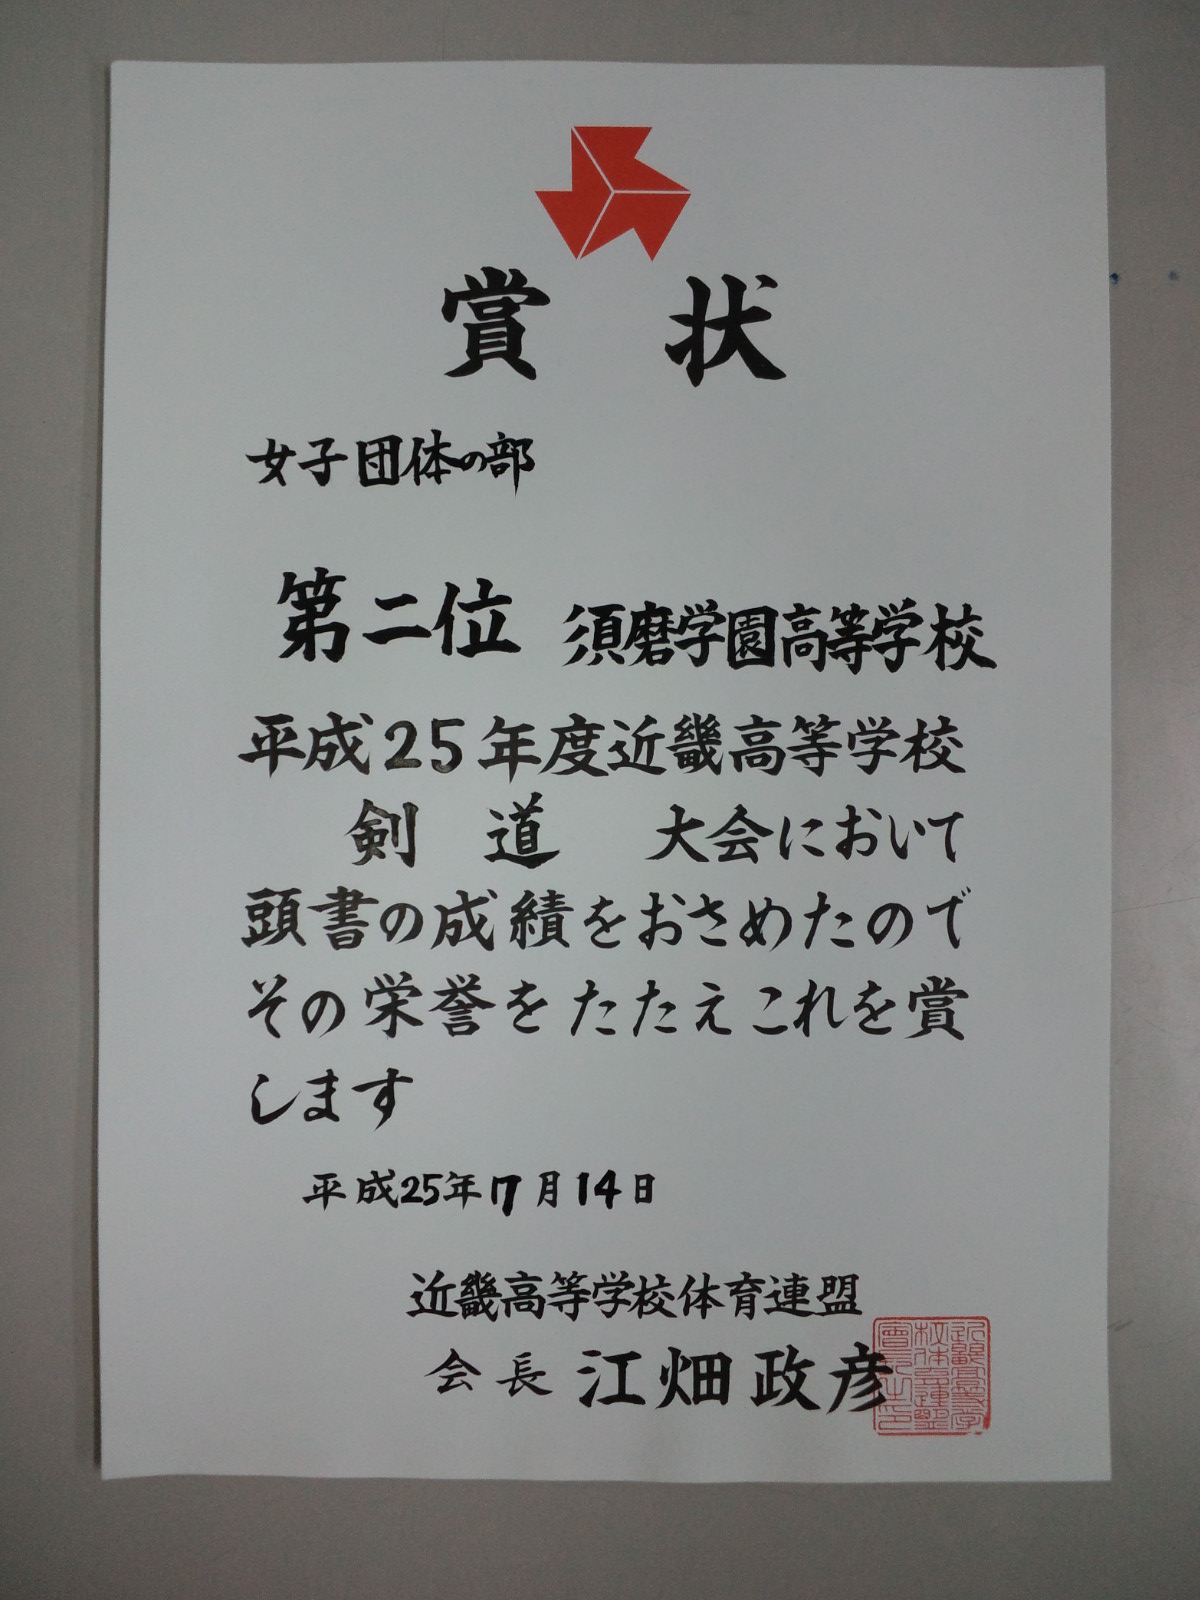 賞状
女子団体の部
第二位 須磨学園高等学校
平成25年度近畿高等学校
剣道 大会において
頭書の成績をおさめたので
その栄誉をたたえこれを賞
します
平成25年7月14日
近畿高等学校体育連盟
会長 江畑政彦